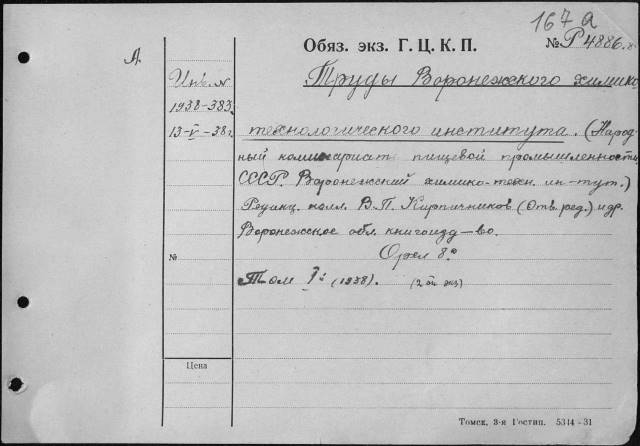 167а
Обяз. экз. Г. Ц. К. П.
№ Р4886.
А.
Труды Воронежского химико-
Инв. №
1938-383.
13-V-38г
технологического института. (Народ-
ный комисариат пищевой промышленности
СССР. Воронежский химико-техн. ин-тут.)
Редакц. колл. В. П. Кирпичников (Отв. ред.) и др.
Воронежское обл. книгоизд-во.
Орел 8°
№
Том I: (1938). (2ой экз)
Цена
Томск, 3-я Гостип. 5344-31